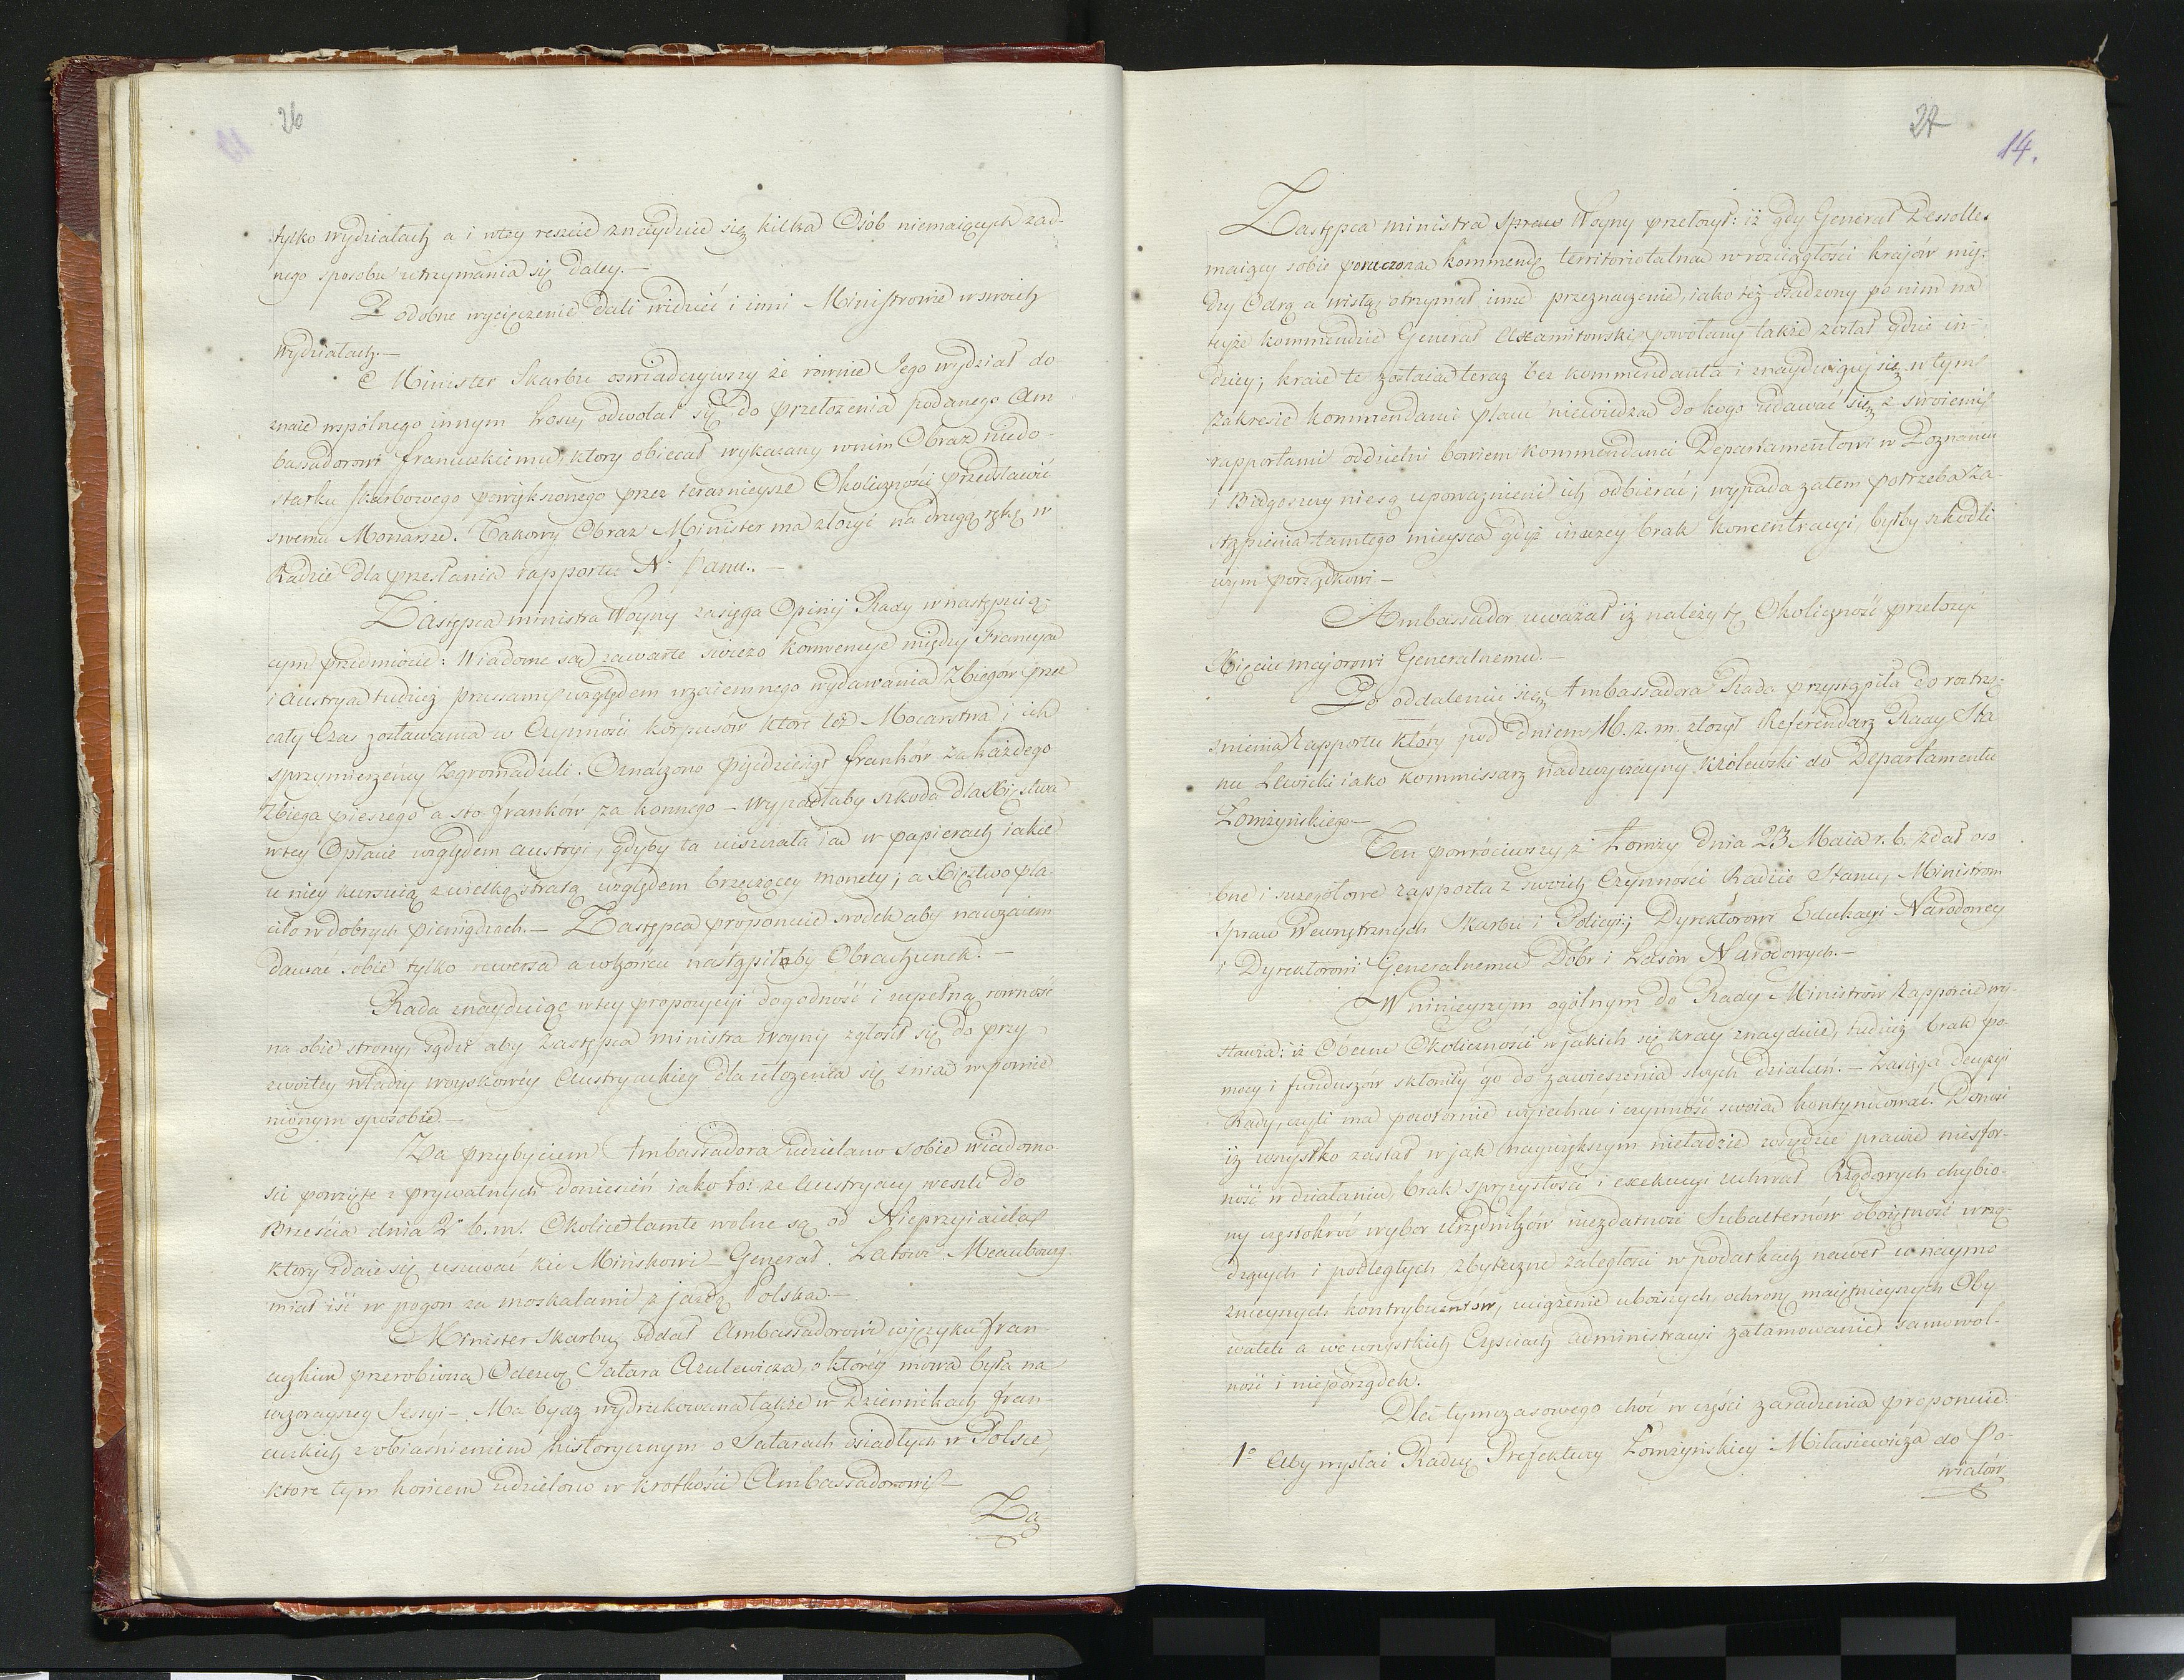 26
tylko wydziałach a i wtey reszcie znaydzie się kilka Osób niemaiących żad-
nego sposobu utrzymania się daley.—
Podobne wycięczenie dali widzieć i inni Ministrowie w swoich
wydziałach.—
Minister Skarbu oswiadczywszy że równie Jego wydział do-
znaie wspólnego innym losu, odwołał się do przełożenia podanego Am-
bassadorowi francuzkiemu, ktory obiecał wykazany wnim Obraz niedo-
statku skarbowego powiększonego przez teraznieysze Okoliczności przedstawić
swemu Monarsze. Takowy Obraz Minister ma złożyć na drugą rękę w
Radzie dla przesłania rapportu N. Panu.—
Zastępca ministra Woyny zasięga Opinij Rady w następuią-
cym przedmiocie: Wiadome są zawarte swieżo konwencye między Francyą
i Austryą tudzież prussami względem wzaiemnego wydawania Zbiegów przez
cały Czas zostawania w Czynności korpusów ktore też Mocarstwa i ich
sprzymierzeńcy zgromadzili. Oznaczono pięćdziesiąt franków za każdego
Zbiega pieszego a sto franków za konnego — wypadłaby szkoda dla Xięstwa
wtey Opłacie względem austryi, gdyby ta uiszczała ią w papierach iakie
u niey kursuią z wielką stratą względem brzęczącey monety; a Xięstwo pła-
ciło w dobrych pieniądzach.— Zastępca proponuie srodek aby nawzaiem
dawać sobie tylko rewersa a wkońcu nastąpiłoby Obrachunek.—
Rada znayduiąc wtey propozycyi dogodność i zupełną rowność
na obie strony, sądzi aby Zastępca ministra woyny zgłosił się do przy-
zwoitey władzy woyskowéy Austryackiey dla ułożenia się znią wpomie-
nionym sposobie.—
Za przybyciem Ambassadora udzielano sobie wiadomo-
ści powzięte z prywatnych doniesień iako to: że Austryacy weszli do
Brześcia dnia 2o b.m. Okolice tamte wolne są od Nieprzyiaciela
ktory zdaie się usuwać ku Mińskowi — Generał Latour Meaubourg
miał iść w pogoń za moskalami z jazdą Polską.—
Minister Skarbu oddał Ambassadorowi w języku fran-
cuzkim przerobioną Odezwę Tatara Azulewicza, o ktoréy mowa była na
wczorayszey Sessyi —. Ma bydź wydrukowana także w Dziennikach fran-
cuzkich z obiaśnieniem historycznym o Tatarach osiadłych w Polsce,
ktore tym końcem udzielono w krotkości Ambassadorowi.—
Za
27
14.
Zastępca ministra Spraw Woyny przełożył: iż gdy Generał Dessolles
maiący sobie poruczoną kommendę territorialną w rozciągłości krajów mię-
dzy Odrą a wisłą otrzymał inne przeznaczenie, iako też osadzony po nim na
teyże kommendzie Generał Axamitowski, powołany także został gdzie in-
dziey; kraie te zostaią teraz bez kommendanta i znayduiący się w tym
zakresie kommendanci placu niewiedzą do kogo udawać się z swoiemi
rapportami oddzielni bowiem kommendanci Departamentowi w Poznaniu
i Bidgoszczy niesą upoważnieni ich odbierać; wypada zatem potrzeba za-
stąpienia tamtego mieysca gdyż inaczey brak koncentracyi byłby szkodli-
wym porządkowi —
Ambassador uważał iż należy tę Okoliczność przełożyć
Xięciu majorowi Generalnemu.—
Po oddaleniu się Ambassadora Rada przystąpiła do roztrzą-
snienia Rapportu ktory pod dniem 16. z. m. złożył Referendarz Rady Sta-
nu Lewicki iako kommissarz nadzwyczayny Królewski do Departamentu
Łomżyńskiego—
Ten powróciwszy z Łomży dnia 23 Maia r. b. zdał oso-
bne i szczegółowe rapporta z swoich Czynności Radzie Stanu, Ministrom
Spraw Wewnętrznych Skarbu i Policyi; Dyrektorowi Edukacyi Narodowey
i Dyrektorowi Generalnemu Dóbr i Lasów Narodowych.—
W ninieyszym ogólnym do Rady Ministrów Rapporcie wy-
stawia: iż Obecne Okoliczności w jakich się kray znayduie, tudzież brak po-
mocy i funduszów skłoniły go do zawieszenia swych działań.— Zasięga decyzyi
Rady, czyli ma powtornie wyiechać i czynność swoią kontynuować. Donosi
iż wszystko zastał w jak naywiększym nieładzie wszędzie prawie niesfor-
ność w działaniu, brak sprężystości i exekucyi uchwał Rządowych chybio-
ny częstokroć wybor Urzędników niezdatność Subalternów oboiętność urzę-
dzących i podległych zbyteczne zaległości w podatkach nawet u naymo-
żnieyszych kontrybuentów, uciążenie uboższych, ochronę maiętnieyszych Oby-
wateli a we wszystkich Częściach administracyi zatamowanie samowol-
ność i nieporządek.
Dla tymczasowego choć w części zaradzenia proponuie:
1o Aby wysłać Radzcę Prefektury Łomżyńskiey Milasiewicza do Po-
wiatów